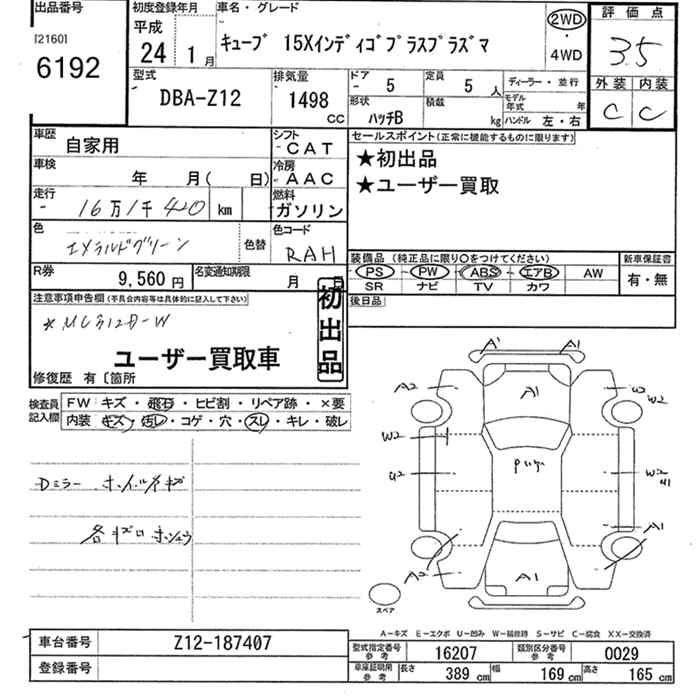 出品番号 初度登録年月 車名・グレード 2WD 評価点
[2160] 平成 キューブ 15Xインディゴプラスプラズマ ・ 3.5
6192 24年 1月 4WD 外装 内装
型式 排気量 ドア 定員 ディーラー・並行 C C
DBA-Z12 1498 CC - 5 5 人 モデル年式 年
形状 ハッチB 積載 kg ハンドル 左・右
車歴 自家用 シフト - CAT セールスポイント(正常に機能するものに限ります)
車検 年 月( 日) 冷房 - AAC ★初出品
走行 - 16万1千420 km 燃料 ガソリン ★ユーザー買取
色 エメラルドグリーン 色替 色コード RAH
装備品(純正品に限り〇をつけてください) 新車保証書
PS PW ABS エアB AW 有・無
SR ナビ TV カワ
R券 9,560 円 名変通知期限 月 日 後日品
注意事項申告欄(不具合内容等は具体的に記入して下さい) 初出品
ユーザー買取車
修復歴 有〔箇所
検査員記入欄 FW キズ・飛石・ヒビ割・リペア跡・×要
内装 キズ・汚レ・コゲ・穴・スレ・キレ・破レ
Dミラー ホイルキズ
A1 A1
A2 A1 W2
W2 W2
U2 W2
A1
A2 A1
スペア
A-キズ E-エクボ U-凹み W-補修跡 S-サビ C-腐食 XX-交換済
車台番号 Z12-187407 型式指定番号 参考 16207 類別区分番号 参考 0029
登録番号 車庫証明用 参考 長さ 389 cm 幅 169 cm 高さ 165 cm